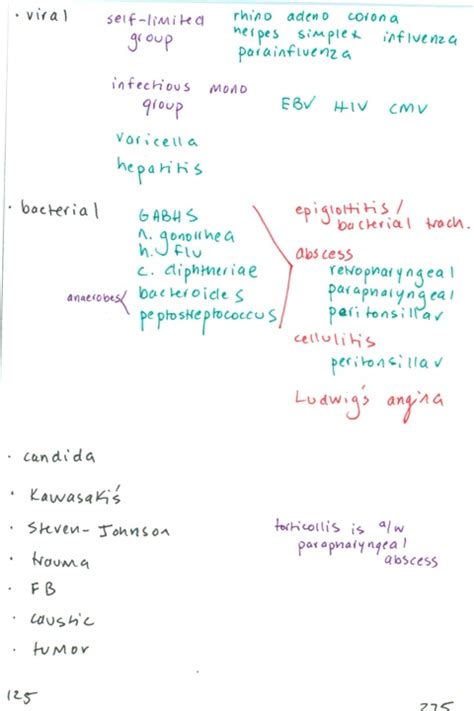 · viral
self-limited group
rhino adeno corona
herpes simplex influenza
parainfluenza
infectious mono group
EBV HIV CMV
varicella
hepatitis
· bacterial
GABHS
n. gonorrhea
h. flu
c. diphtheriae
anaerobes/ bacteroides
peptostreptococcus
epiglottitis/
bacterial trach.
abscess
retropharyngeal
parapharyngeal
peritonsillar
cellulitis
peritonsillar
Ludwig's angina
· candida
· Kawasaki's
· Steven-Johnson
· trauma
· FB
· caustic
· tumor
torticollis is a/w
parapharyngeal
abscess
125
275